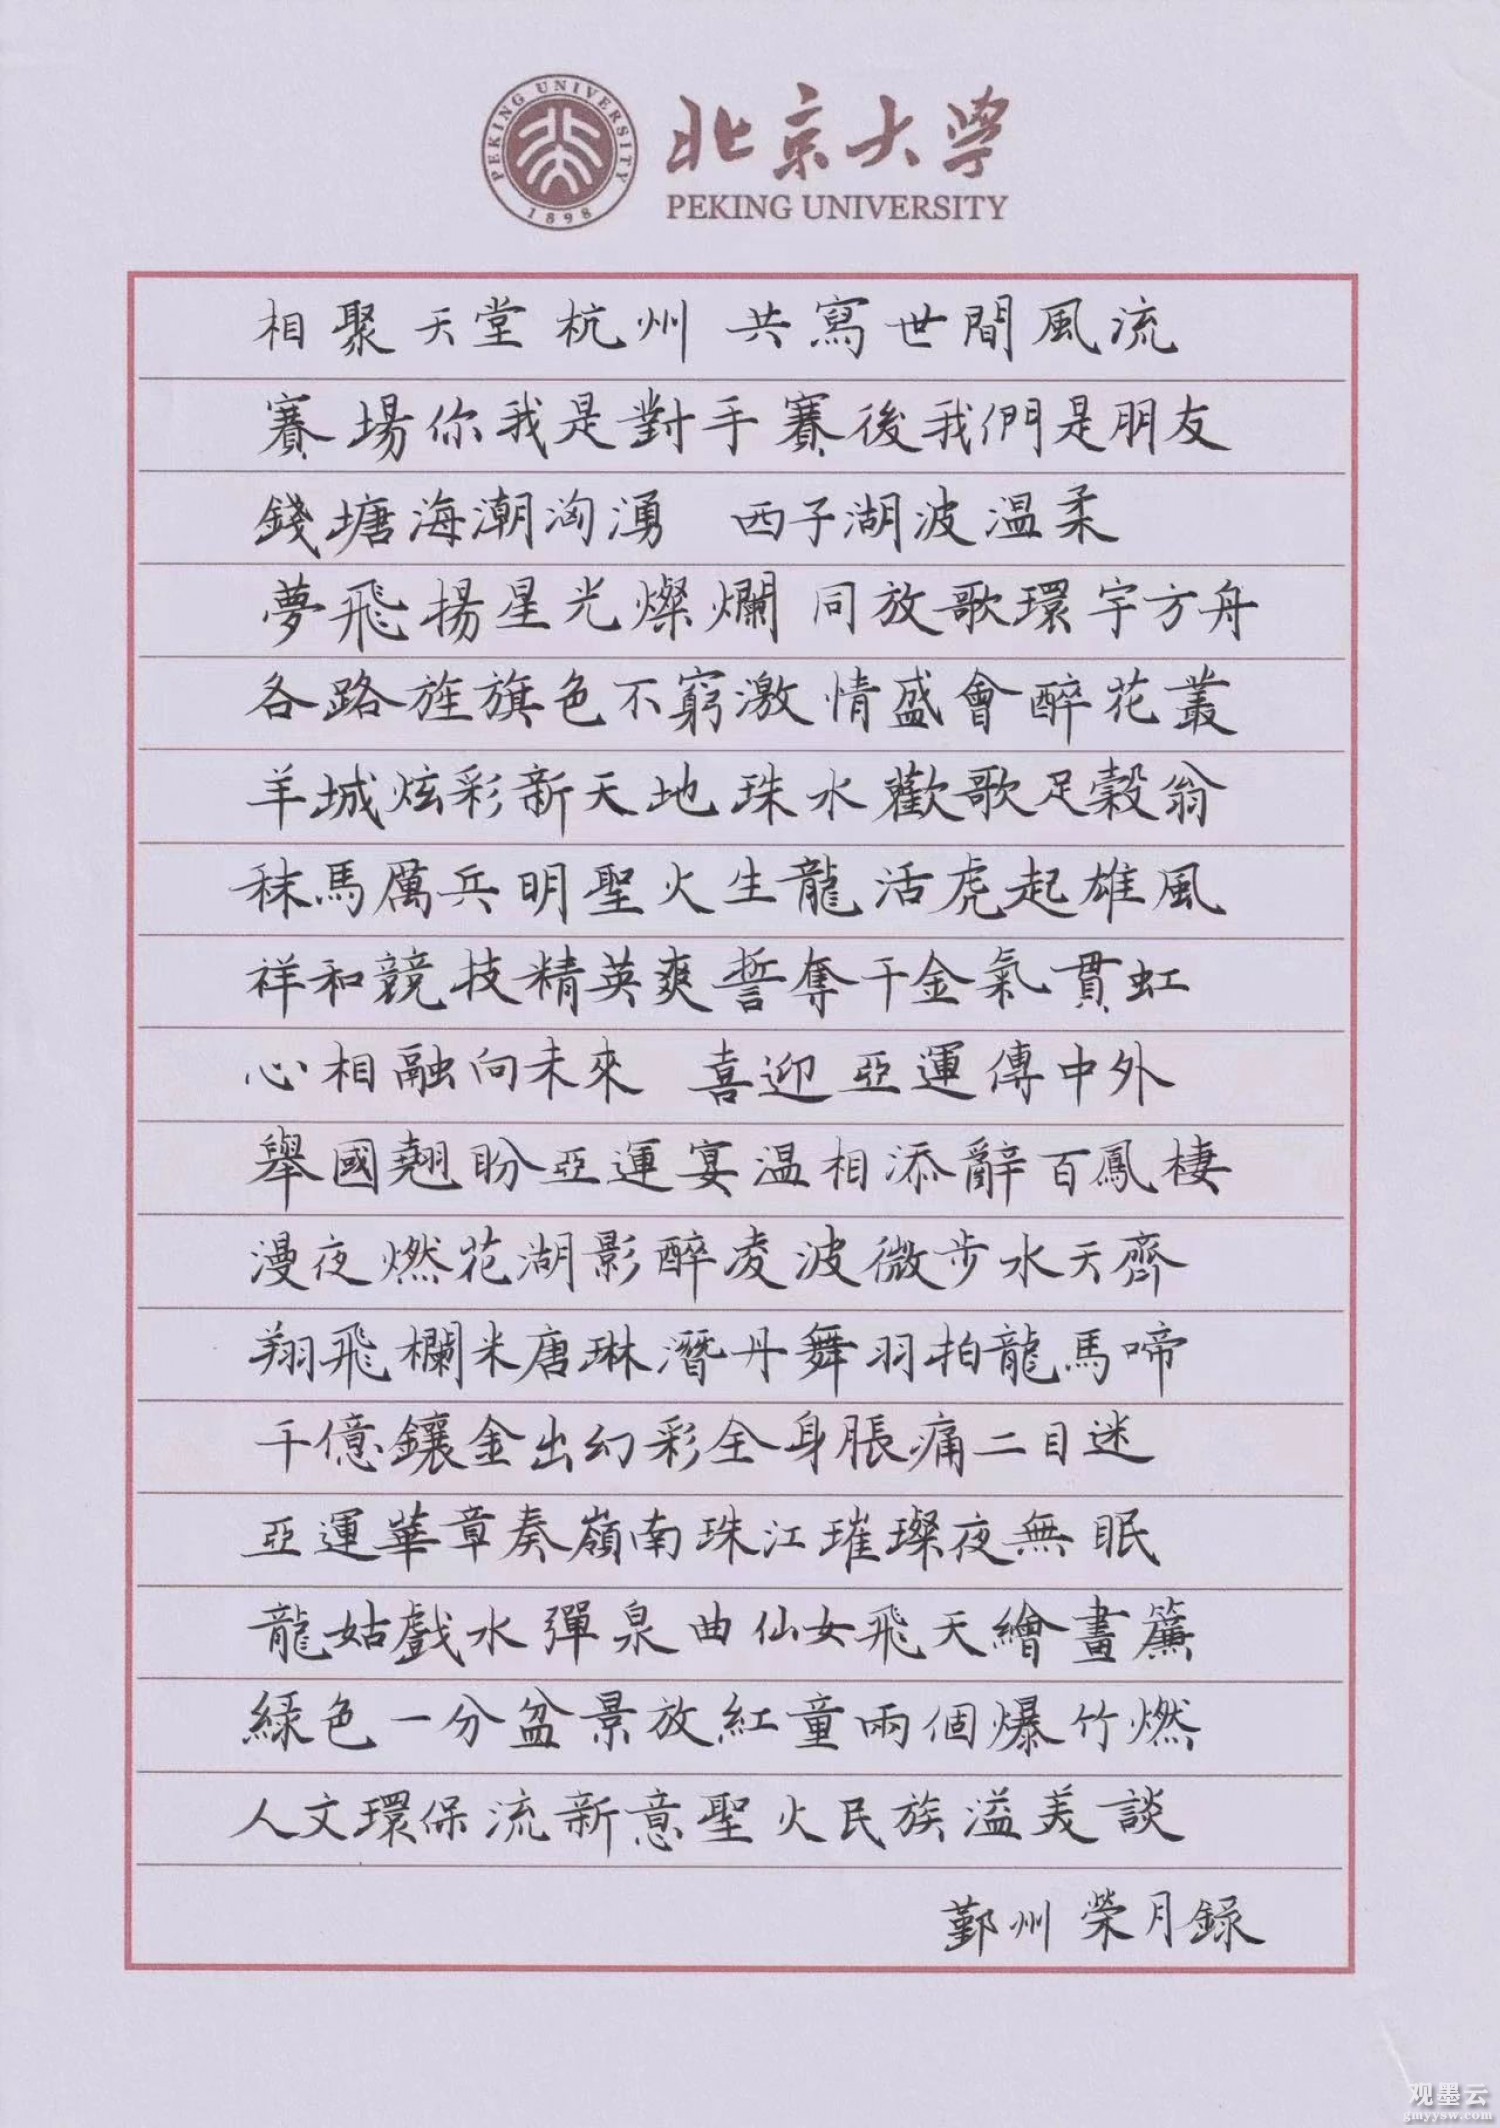 PEKING UNIVERSITY
1898
北京大学
PEKING UNIVERSITY
相聚天堂杭州 共寫世間風流
賽場你我是對手賽後我們是朋友
錢塘海潮洶湧 西子湖波溫柔
夢飛揚星光燦爛 同放歌環宇方舟
各路旌旗色不窮激情盛會醉花叢
羊城炫彩新天地珠水歡歌足穀翁
秣馬厲兵明聖火生龍活虎起雄風
祥和競技精英爽誓奪千金氣貫虹
心相融向未來 喜迎亞運傳中外
舉國翹盼亞運宴溫相添辭百鳳棲
漫夜燃花湖影醉凌波微步水天齊
翔飛欄米唐琳潛丹舞羽拍龍馬啼
千億鑲金出幻彩全身脹痛二目迷
亞運華章奏嶺南珠江璀璨夜無眠
龍姑戲水彈泉曲仙女飛天繪畫簾
綠色一分盆景放紅童兩個爆竹燃
人文環保流新意聖火民族溢美談
鄞州 榮月錄
观墨云
gmyysw.com